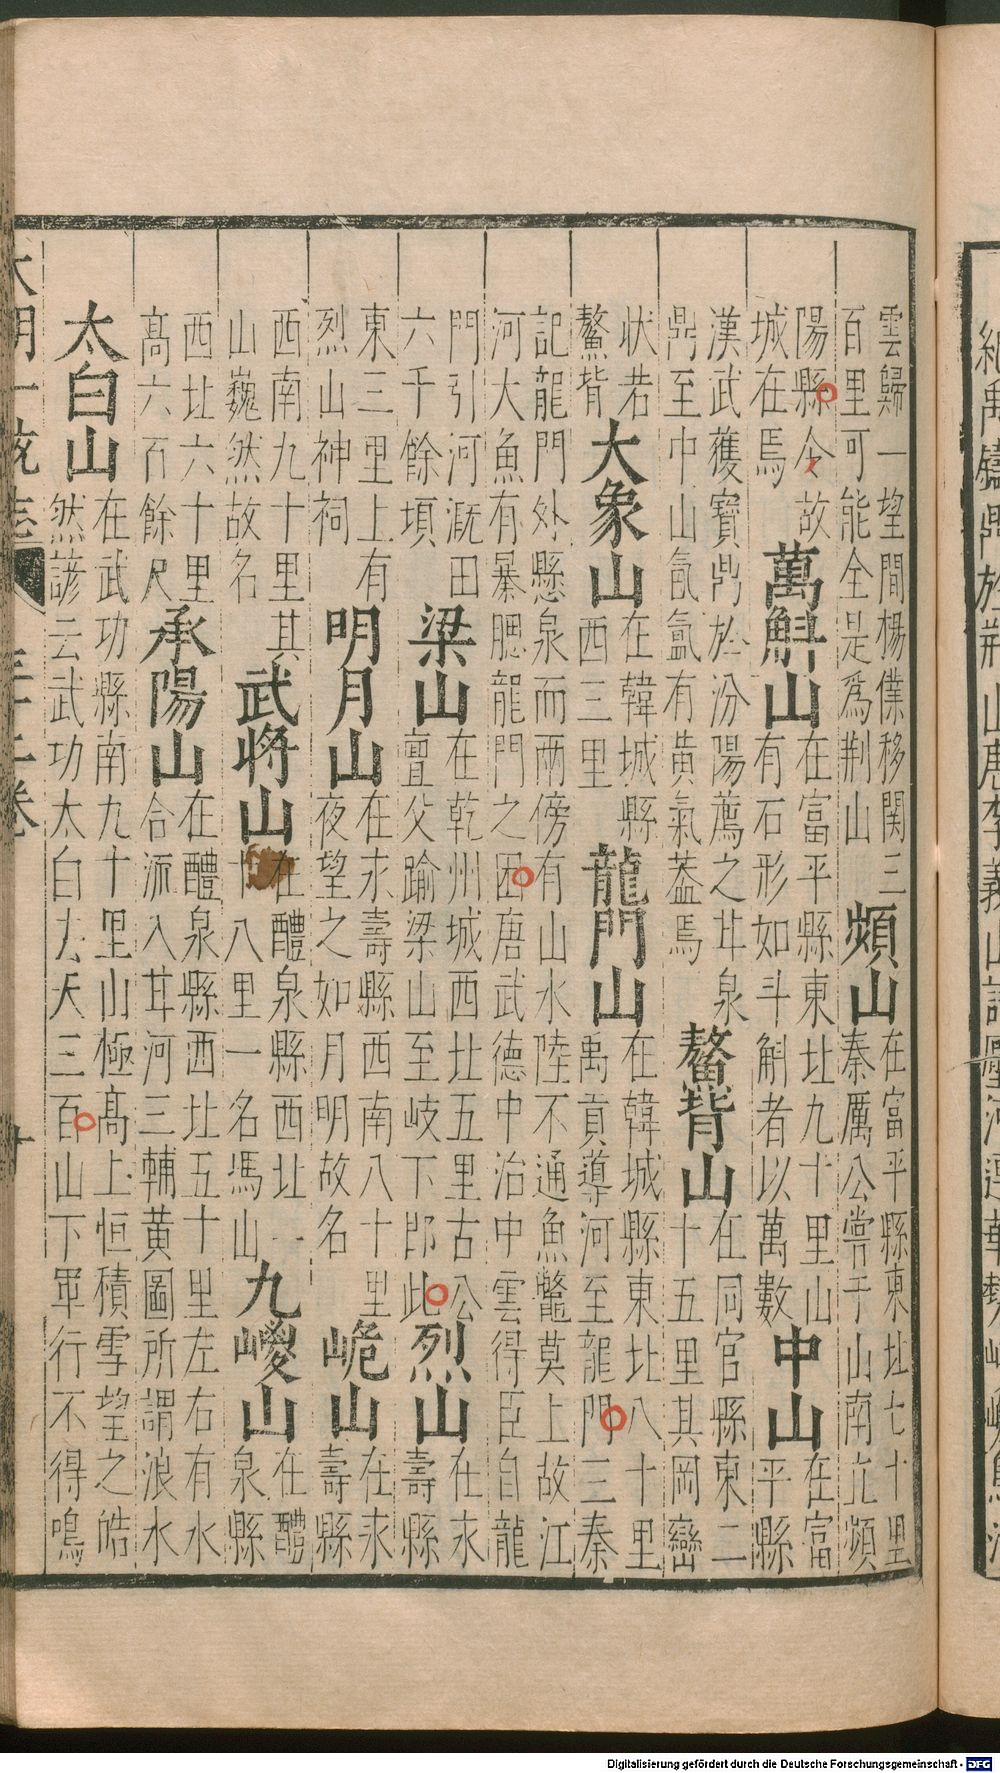 雲歸一望間楊僕移関三
百里可能全是爲荆山
頻山
在富平縣東北七十里
秦厲公甞于山南立頻
陽縣今故
城在焉
萬斛山
在富平縣東北九十里山
有石形如斗斛者以萬數
中山
在富
平縣
漢武獲寳鼎於汾陽薦之甘泉
鼎至中山氤氳有黄氣葢焉
鰲背山
在同官縣東二
十五里其岡巒
状若
鰲背
大象山
在韓城縣
西三里
龍門山
在韓城縣東北八十里
禹貢導河至龍門三秦
記龍門外懸泉而兩傍有山水陸不通魚鼈莫上故江
河大魚有暴腮龍門之困唐武德中治中雲得臣自龍
門引河溉田
六千餘頃
梁山
在乾州城西北五里古公
亶父踰梁山至岐下即此
烈山
在永
壽縣
東三里上有
烈山神祠
明月山
在永壽縣西南八十里
夜望之如月明故名
峗山
在永
壽縣
西南九十里其
山巍然故名
武将山
在醴泉縣西北
十八里一名馮山
九嵕山
在醴
泉縣
西北六十里
高六百餘尺
承陽山
在醴泉縣西北五十里左右有水
合流入甘河三輔黄圖所謂浪水
太白山
在武功縣南九十里山極高上恒積雪望之皓
然諺云武功太白去天三百山下軍行不得鳴
大明一統志
卷
十
Digitalisierung gefördert durch die Deutsche Forschungsgemeinschaft - DFG